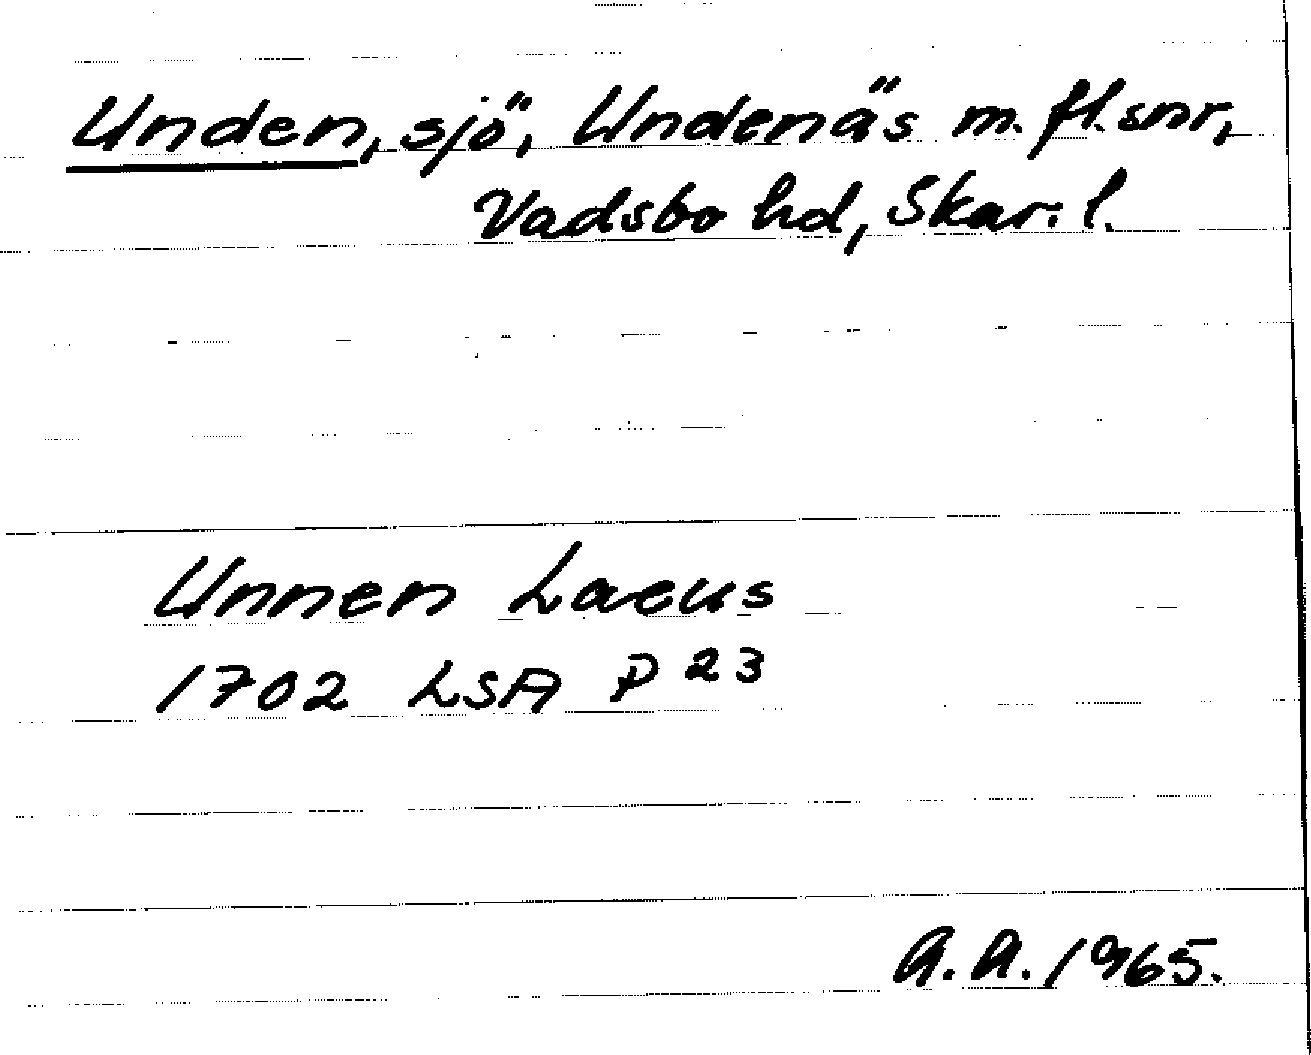 Unden, sjö, Undenäs m. fl. snr,
Vadsbo hd, Skar. l.
Unnen Lacus
1702 LSA P 23
A.A. 1965.